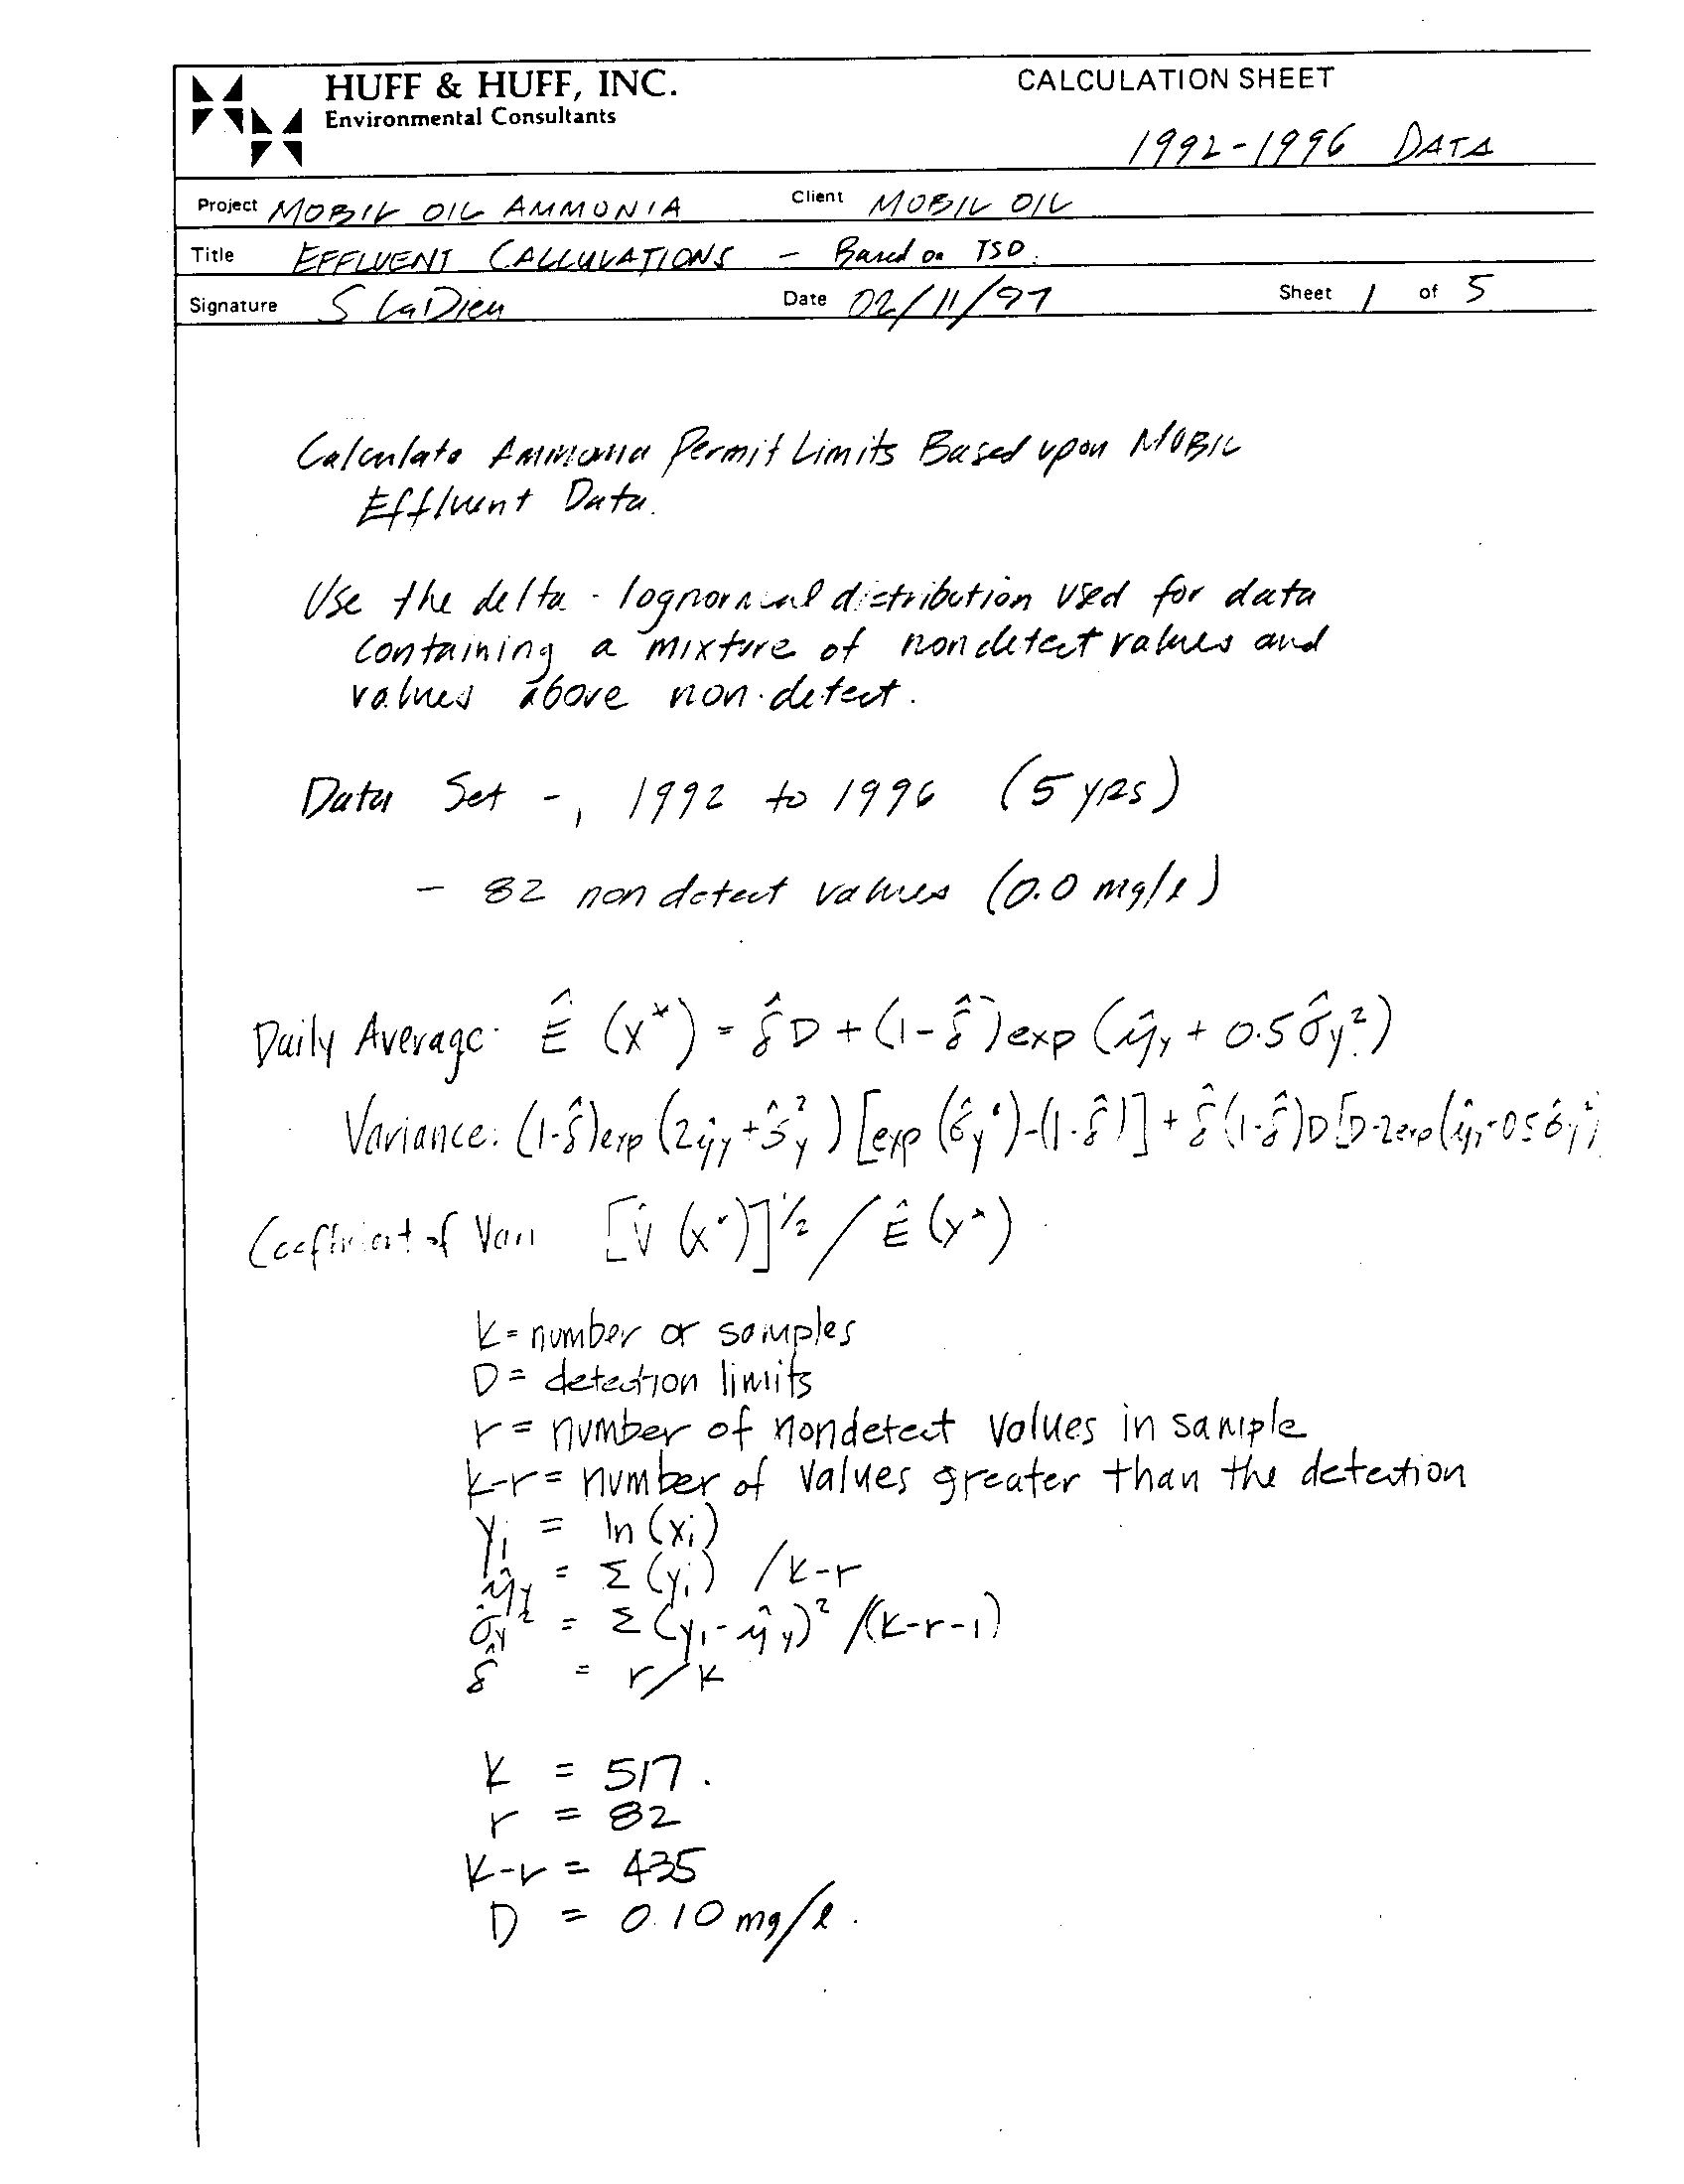 HUFF & HUFF, INC.
Environmental Consultants
CALCULATION SHEET
1992-1996 DATA
Project MOBIL OIL AMMONIA Client MOBIL OIL
Title EFFLUENT CALCULATIONS - Based on TSD.
Signature S LaDieu Date 02/11/97 Sheet 1 of 5
Calculate Ammonia Permit Limits Based upon MOBIL
Effluent Data.
Use the delta-lognormal distribution used for data
containing a mixture of nondetect values and
values above non-detect.
Data Set -, 1992 to 1996 (5 yrs)
- 82 non detect values (0.0 mg/l)
Daily Average: Ê (X*) = δ̂D + (1-δ̂)exp(μ̂y + 0.5σ̂y²)
Variance: (1-δ̂)exp(2μ̂y+σ̂y²)[exp(σ̂y²)-(1-δ̂)] + δ̂(1-δ̂)D[D-2exp(μ̂y+0.5σ̂y²)
Coefficient of Vari [V̂(X*)]^1/2 / Ê(X*)
K = number or samples
D = detection limits
r = number of nondetect values in sample
k-r = number of values greater than the detection
yi = ln(xi)
μ̂y = Σ(yi) /k-r
σ̂y² = Σ(yi-μ̂y)² /(k-r-1)
δ̂ = r/k
K = 517.
r = 82
K-r = 435
D = 0.10 mg/l.